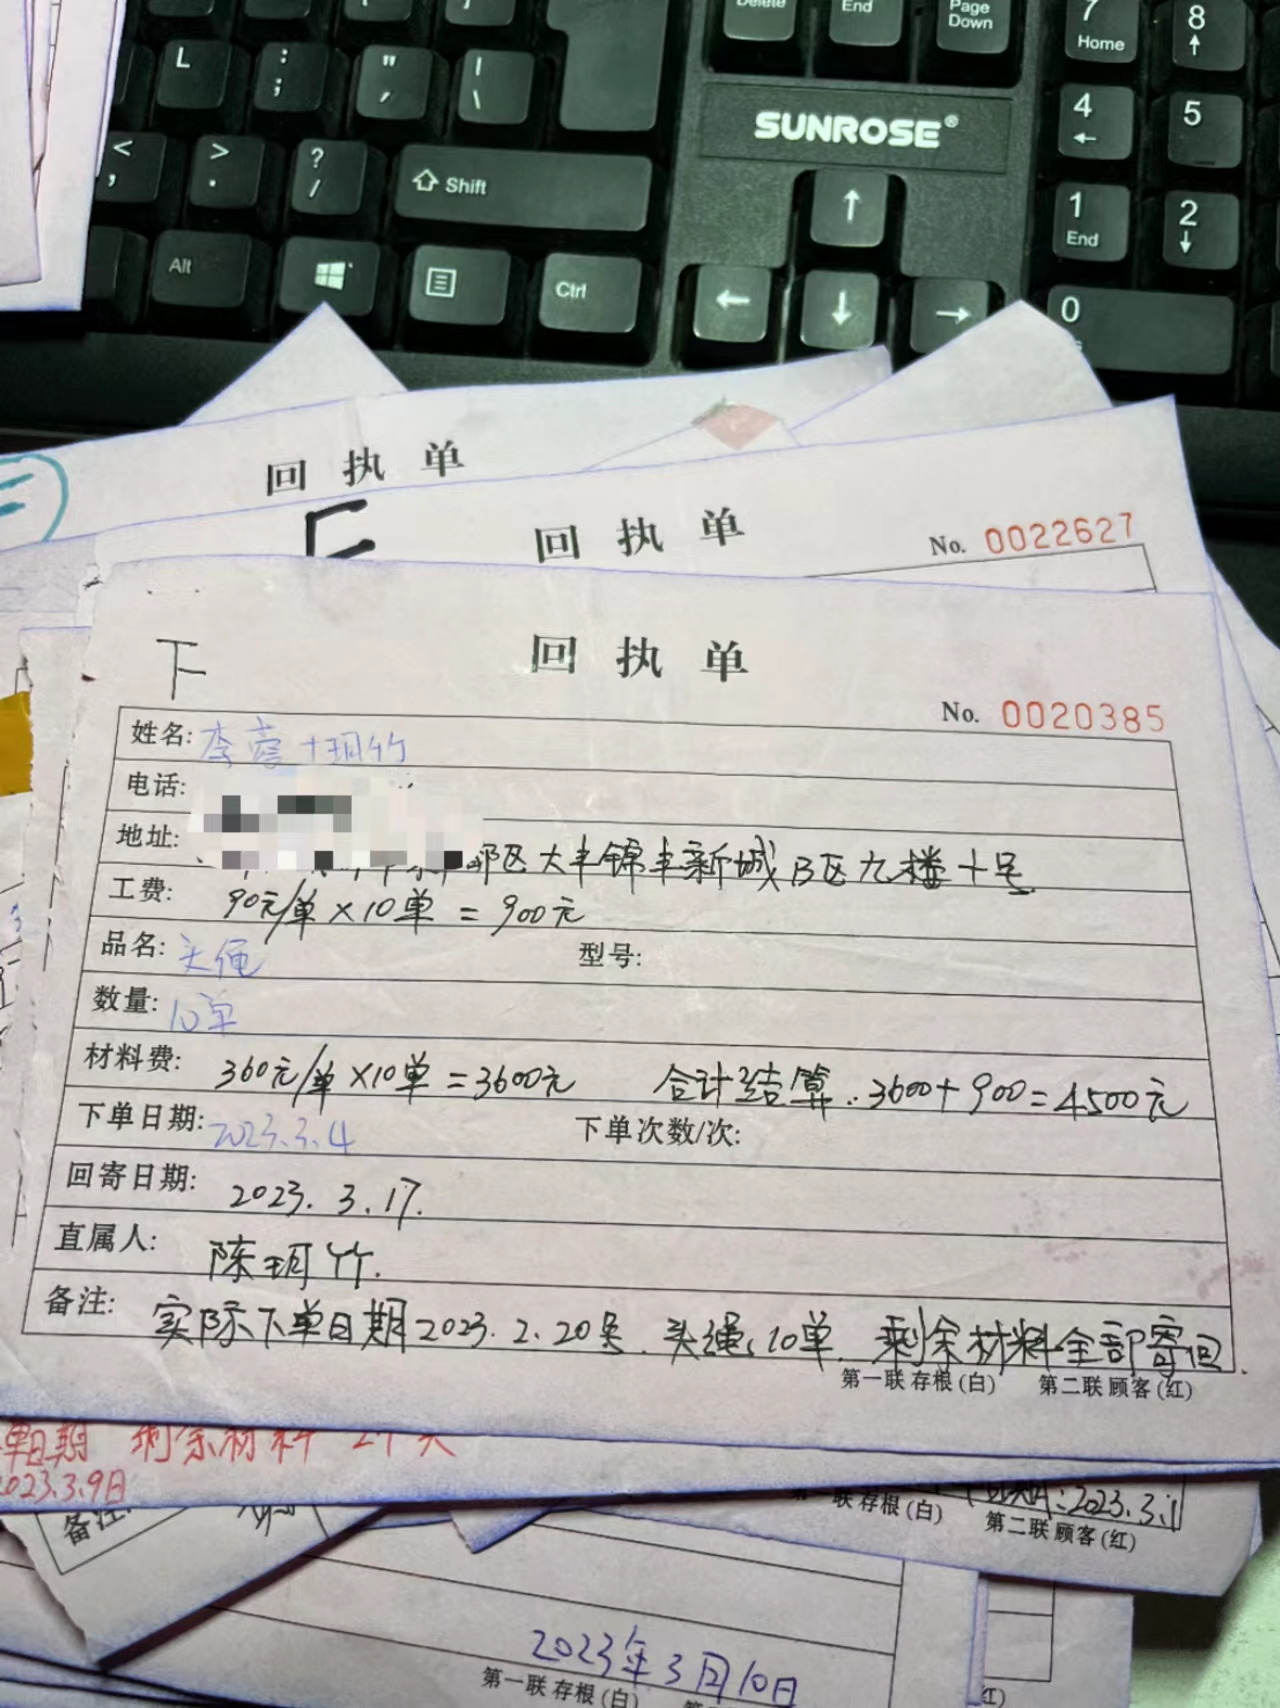 Delete
End
Page Down
7 Home
8
L
: ;
" '
| \
SUNROSE®
4
5
< ,
> .
? /
Shift
1 End
2
Alt
Ctrl
0
回执单
回执单
No. 0022627
下
回执单
No. 0020385
姓名: 李蓉十玥竹
电话:
地址: 都区大丰锦丰新城B区九楼十号
工费: 90元/单×10单=900元
品名: 头绳 型号:
数量: 10单
材料费: 360元/单×10单=3600元 合计结算.3600+900=4500元
下单日期: 2023.3.4 下单次数/次:
回寄日期: 2023.3.17.
直属人: 陈玥竹.
备注: 实际下单日期2023.2.20号.头绳10单.剩余材料全部寄回.
第一联存根(白) 第二联顾客(红)
单日期 剩余材料
2023.3.9日
备注:
联存根(白)
:2023.3.11
第二联顾客(红)
2023年3月10日
第一联存根(白)